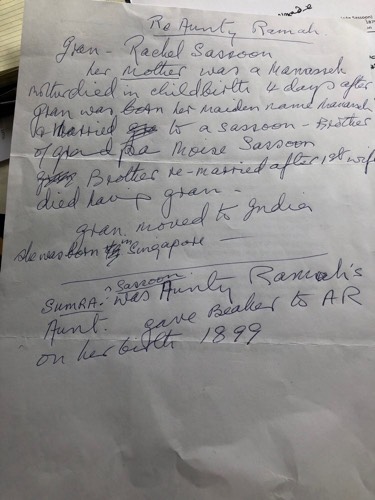 Re Aunty Ramah
Gran - Rachel Sassoon
her mother was a Manasseh
mother died in childbirth 4 days after
gran was born her maiden name Manasseh
& married to a Sassoon - Brother
of grand pa Moise Sassoon
Brother re-married after 1st wife
died having gran -
gran moved to India
she was born in Singapore
Sassoon
SUMRA: was Aunty Ramah's
Aunt. gave Beaker to AR
on her birth 1899